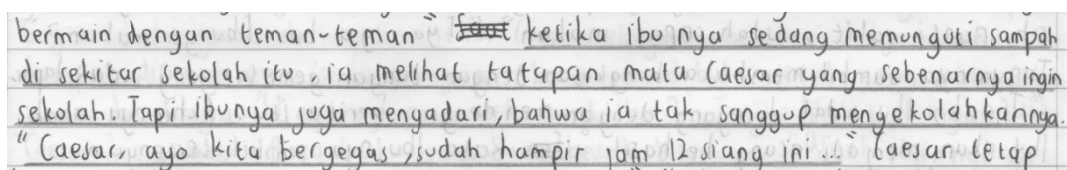 bermain dengan teman-teman" ketika ibunya sedang memunguti sampah
di sekitar sekolah itu, ia melihat tatapan mata Caesar yang sebenarnya ingin
sekolah. Tapi ibunya juga mengadari, bahwa ia tak sanggup mengekolahkannya.
"Caesar, ayo kita bergegas, sudah hampir jam 12 siang ini..." Caesar tetap